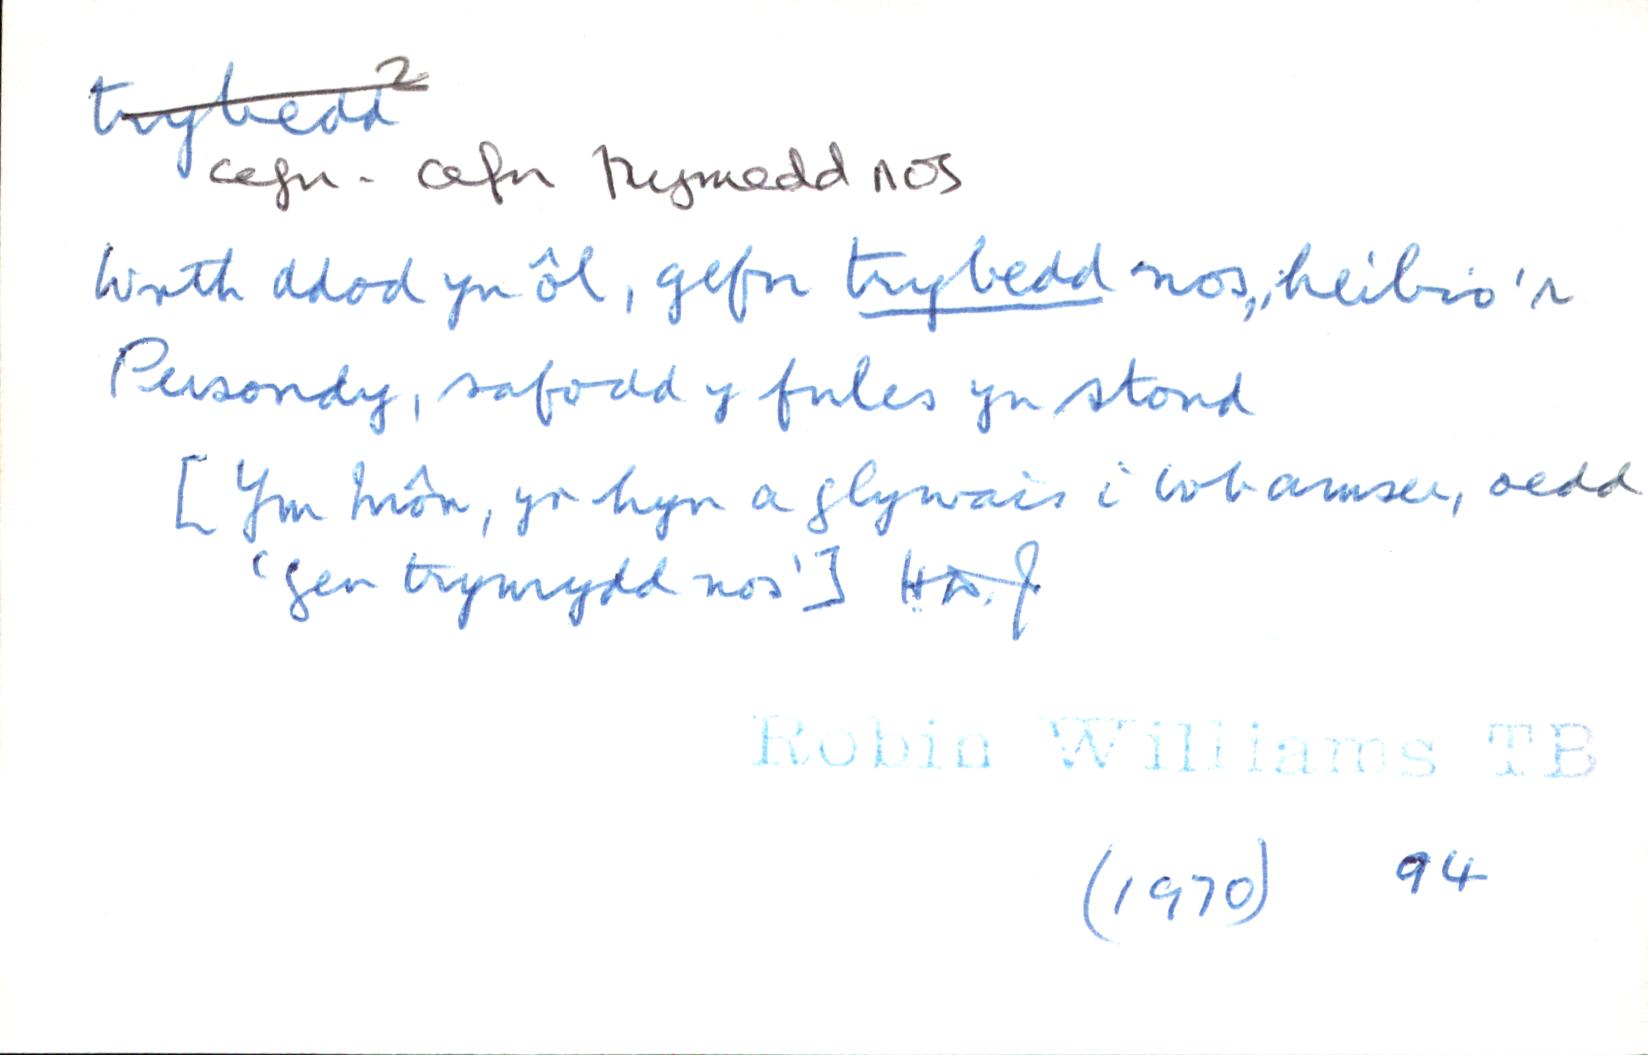 trybedd²
cefn - cefn trymedd nos
Wrth ddod yn ôl, gefn trybedd nos, heibio'r
Persondy, safodd y fules yn stond
[Ym Môn, yr hyn a glywais i bob amser, oedd
'gen trymrydd nos']
Robin Williams TB
(1970) 94